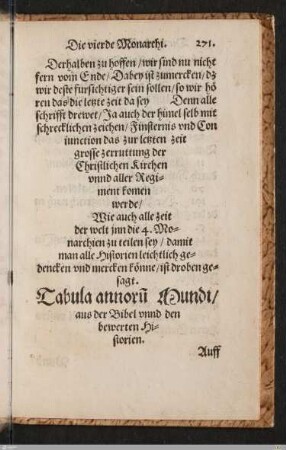 Die vierde Monarchi. 271.
Derhalben zu hoffen / wir sind nu nicht
fern vom Ende / Dabey ist zumercken / dz
wir deste fursichtiger sein sollen / so wir hö
ren das die letzte zeit da sey Denn alle
schrifft drewet / Ja auch der himel selb mit
schrecklichen zeichen / Finsternis vnd Con
iunction das zur letzten zeit
grosse zerruttung der
Christlichen Kirchen
vnnd aller Regi-
ment komen
werde /
Wie auch alle zeit
der welt jnn die 4. Mo-
narchien zu teilen sey / damit
man alle Historien leichtlich ge-
dencken vnd mercken könne / ist droben ge-
sagt.
Tabula annorũ Mundi /
aus der Bibel vnnd den
bewerten Hi-
storien.
Auff